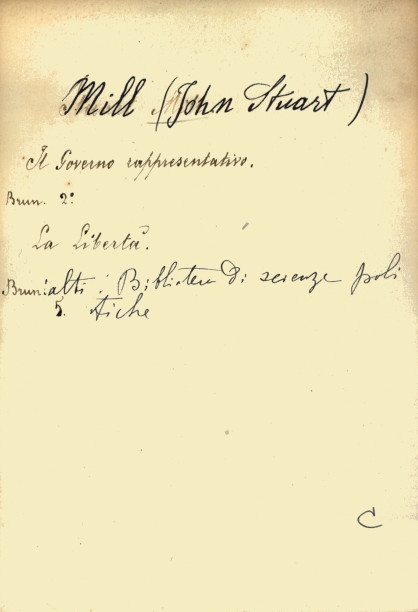 Mill (John Stuart)
Il Governo rappresentativo.
Brun. 2º
La Libertà.
Brunialti: Biblioteca di scienze poli
5. tiche
C